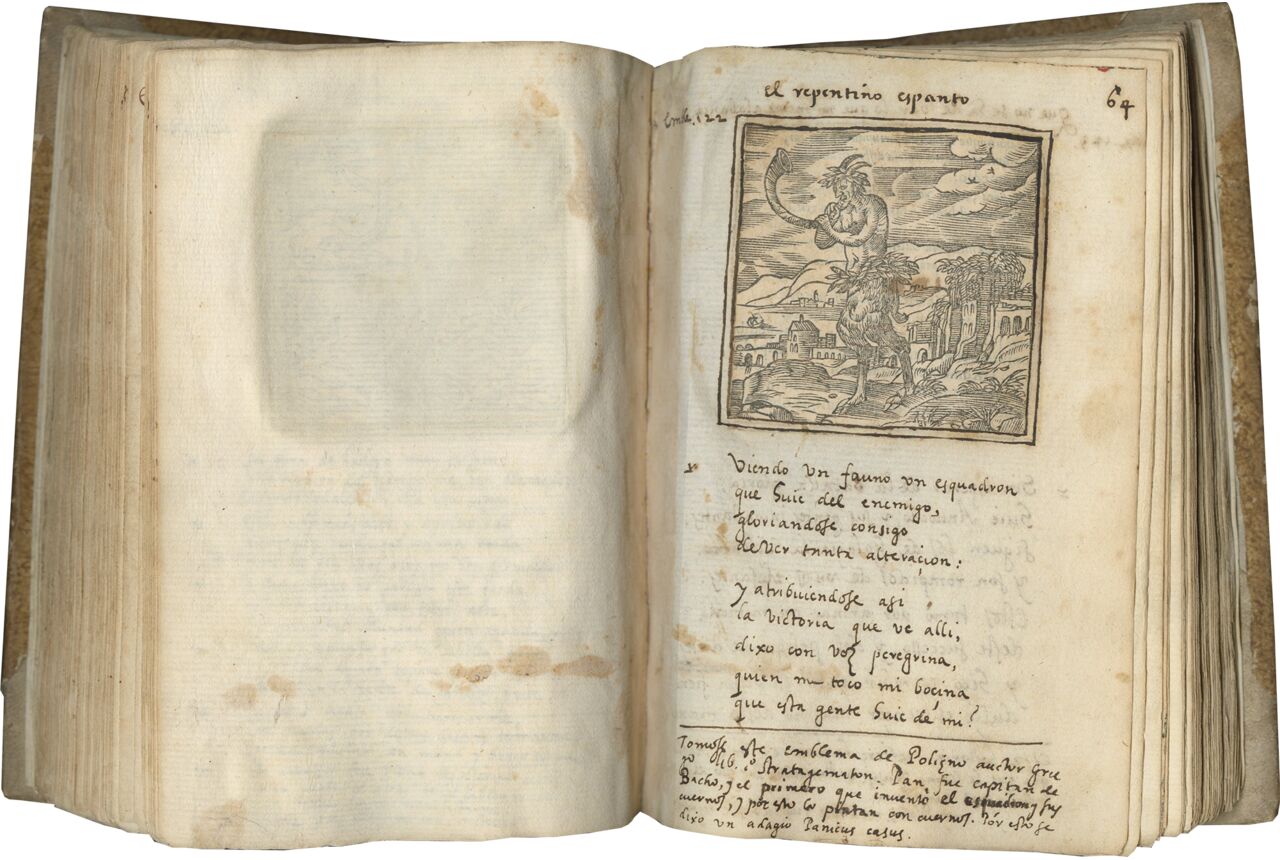 el repentino espanto
64
Emble. 122
Viendo un fauno un esquadron
que huie del enemigo,
gloriandose consigo
de ver tanta alteraçion:
y atribuiendose asi
la victoria que ve alli,
dixo con voz peregrina,
quien toco mi boçina
que esta gente huie de mi?
Tomose este emblema de Polieno auctor Grie
go lib. 1º Stratagematon. Pan, fue capitan de
Bacho, y el primero que invento el esquadron y sus
cuernos, y por esto lo pintan con cuernos. Por esto se
dixo un adagio Panicus casus.